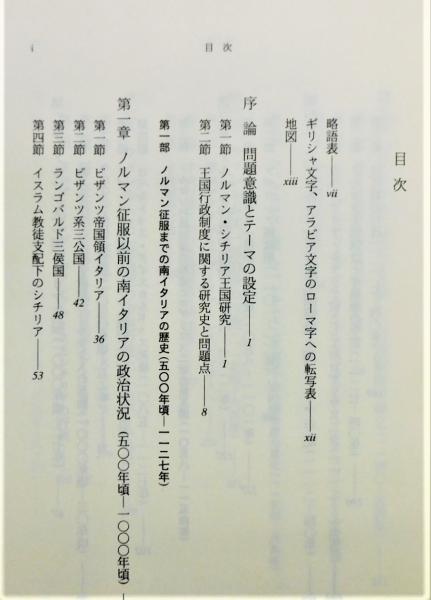 目次
i
目次
略語表――vii
ギリシャ文字、アラビア文字のローマ字への転写表――xii
地図――xiii
序論 問題意識とテーマの設定――1
第一節 ノルマン・シチリア王国研究――1
第二節 王国行政制度に関する研究史と問題点――8
第一部 ノルマン征服までの南イタリアの歴史(五〇〇年頃―一一二七年)
第一章 ノルマン征服以前の南イタリアの政治状況(五〇〇年頃―一〇〇〇年頃)―
第一節 ビザンツ帝国領イタリア――36
第二節 ビザンツ系三公国――42
第三節 ランゴバルド三侯国――48
第四節 イスラム教徒支配下のシチリア――53